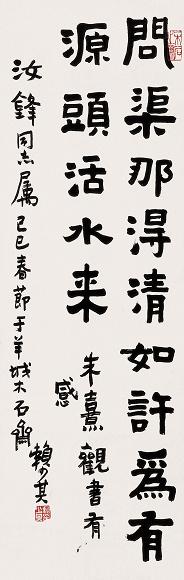 問渠那得清如許為有
源頭活水来
朱熹觀書有
感
汝鋒同志属己巳春節于羊城木石齋
賴少其